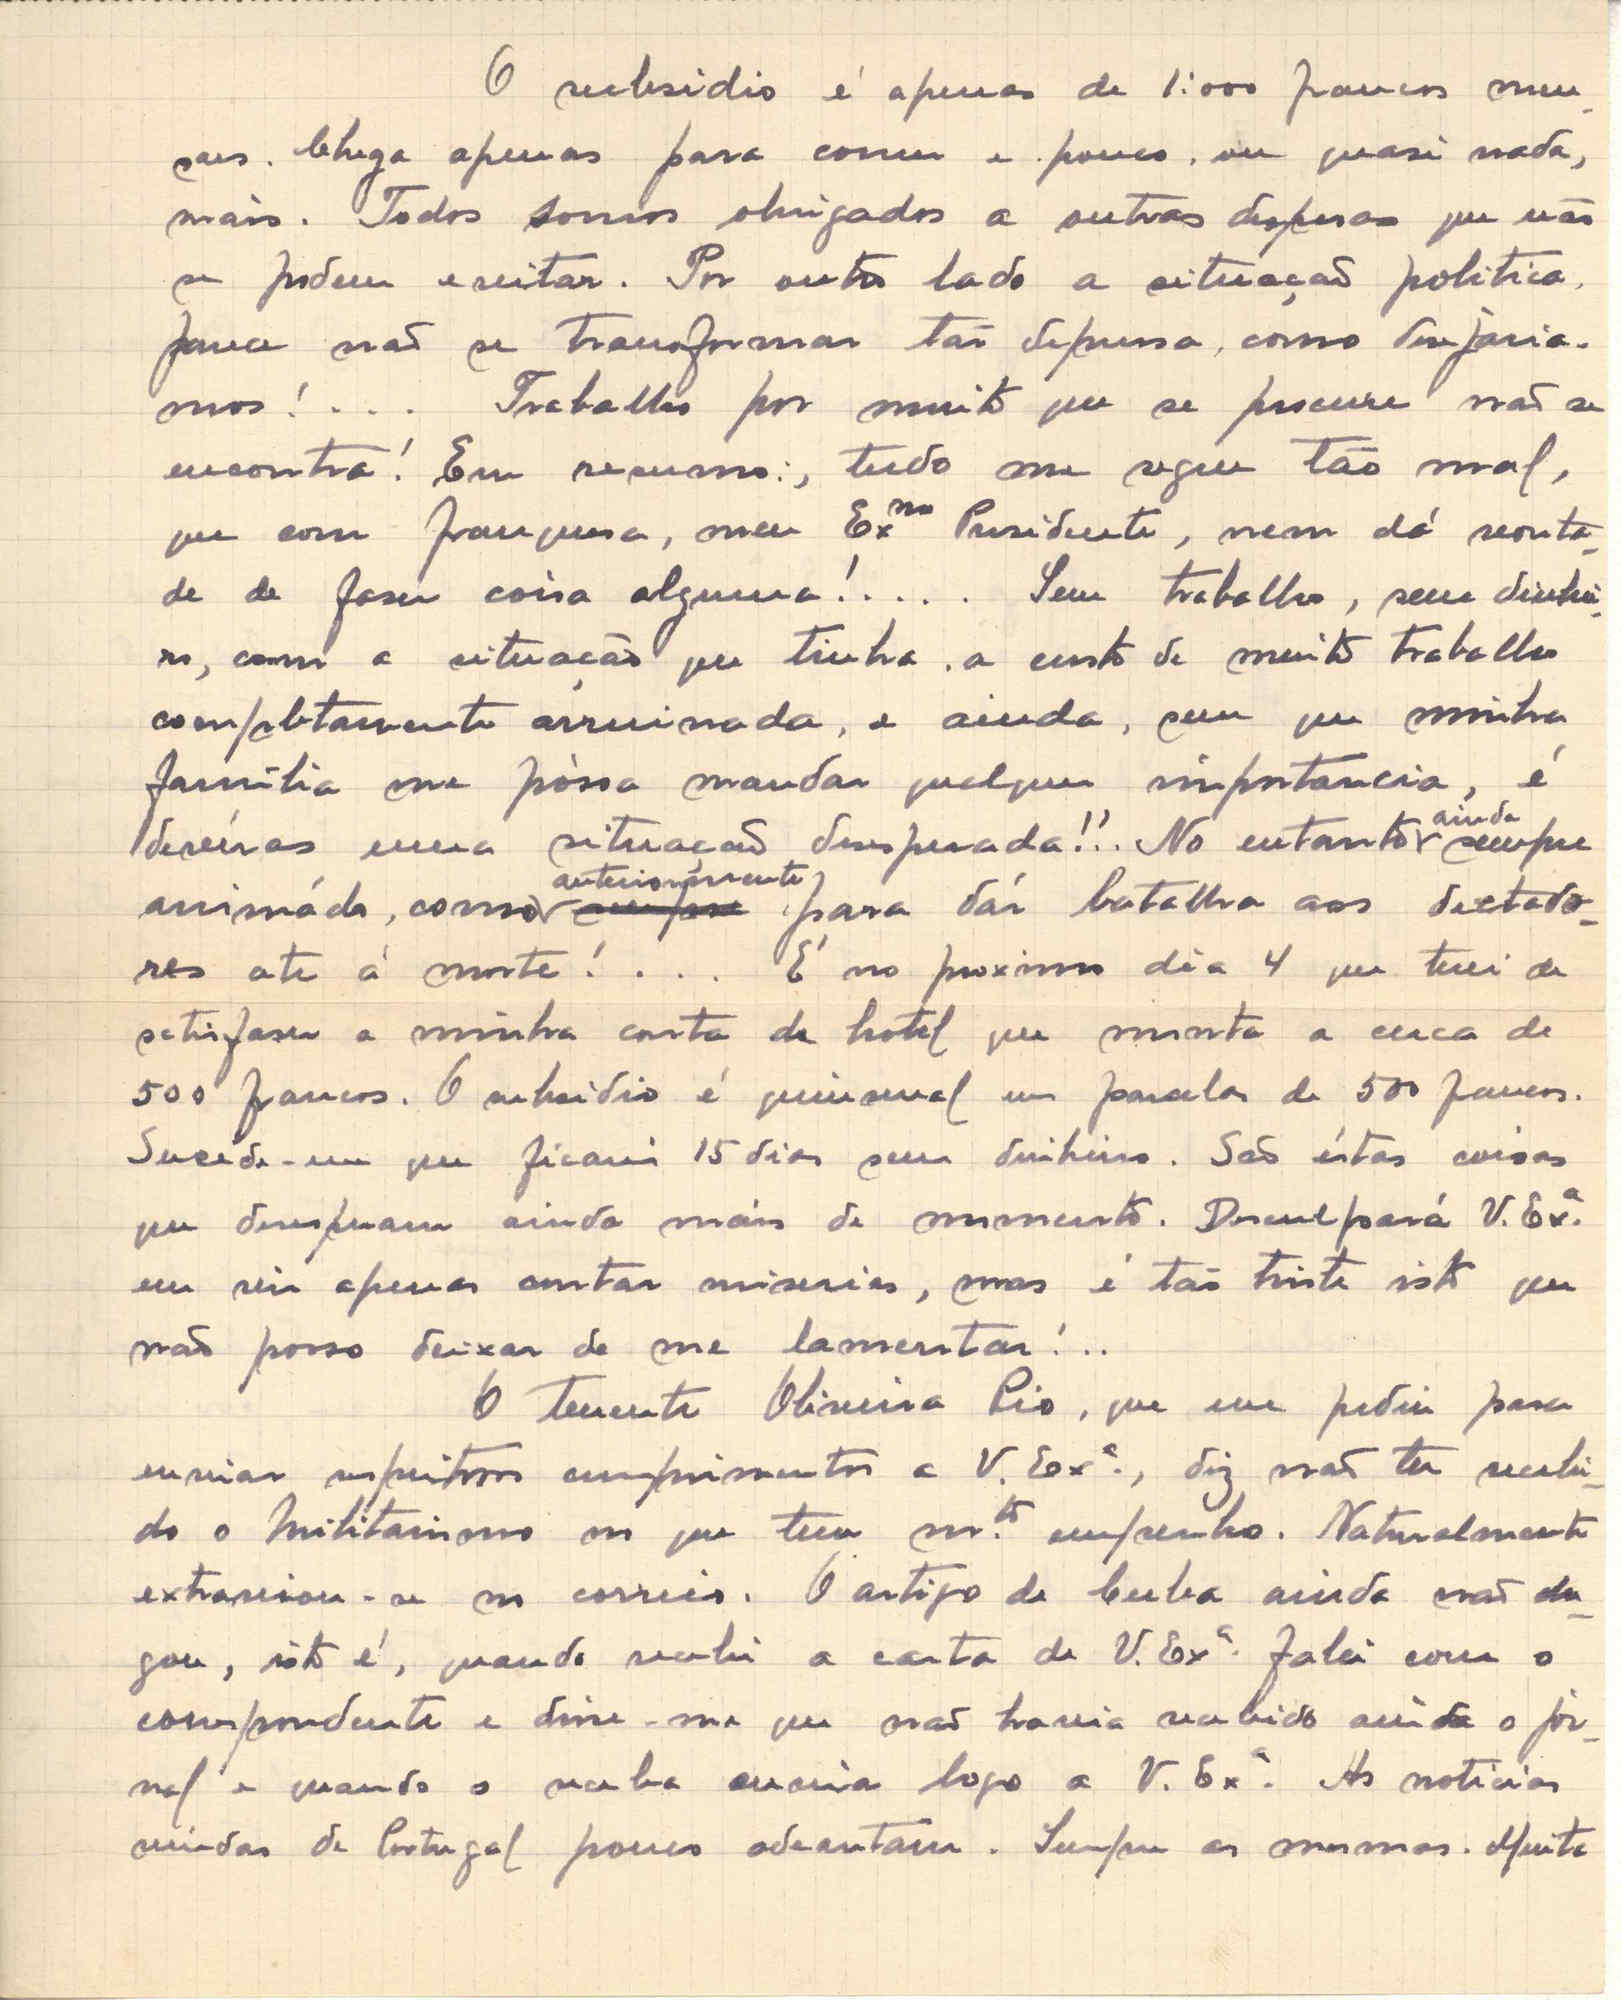 O subsidio é apenas de 1:000 francos men-
saes. Chega apenas para comer e pouco, ou quasi nada,
mais. Todos somos obrigados a outras despesas que não
se podem evitar. Por outro lado a situação politica,
parece não se transformar tão depressa, como desejaria-
mos!.... Trabalho por muito que se procure não se
encontra! Em resumo:, tudo me segue tão mal,
que com franquesa, meu Exmo Presidente, nem dá vonta-
de de faser coisa alguma!..... Sem trabalho, sem dinhei-
ro, com a situação que tinha a custo de muito trabalho
completamente arruinada, e ainda, sem que minha
familia me póssa mandar qualquer importancia, é
devéras uma situação desesperada!!.. No entanto ainda sempre
animádo, como anteriormente para dár batalha aos dictado-
res ate á morte!.... É no proximo dia 4 que terei de
satisfaser a minha conta de hotel que monta a cerca de
500 francos. O subsidio é quinsenal em parcelas de 500 francos.
Sucede-me que ficarei 15 dias sem dinheiro. São éstas coisas
que desesperam ainda mais de momento. Desculpará V. Exª.
eu vir apenas contar miserias, mas é tão triste isto que
não posso deixar de me lamentar!..
O tenente Oliveira Pio, que me pediu para
enviar respeitosos cumprimentos a V. Exª., diz não ter recebi-
do o Militarismo no que tem m.to empenho. Naturalmente
extraviou-se no correio. O artigo de Cuba ainda não che-
gou, isto é, quando recebi a carta de V. Exª. falei com o
correspondente e disse-me que não havia recebido ainda o jór-
nal e quando o receba enviá logo a V. Exª. As noticias
vindas de Portugal pouco adeantam. Sempre as mesmas.